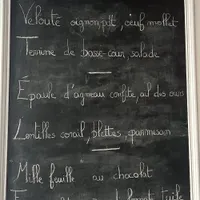 Velouté oignon, oeuf mollet
Terrine de basse-cour, salade
Épaule d'agneau confite, ail des ours
Lentilles corail, blettes, parmesan
Mille feuille au chocolat